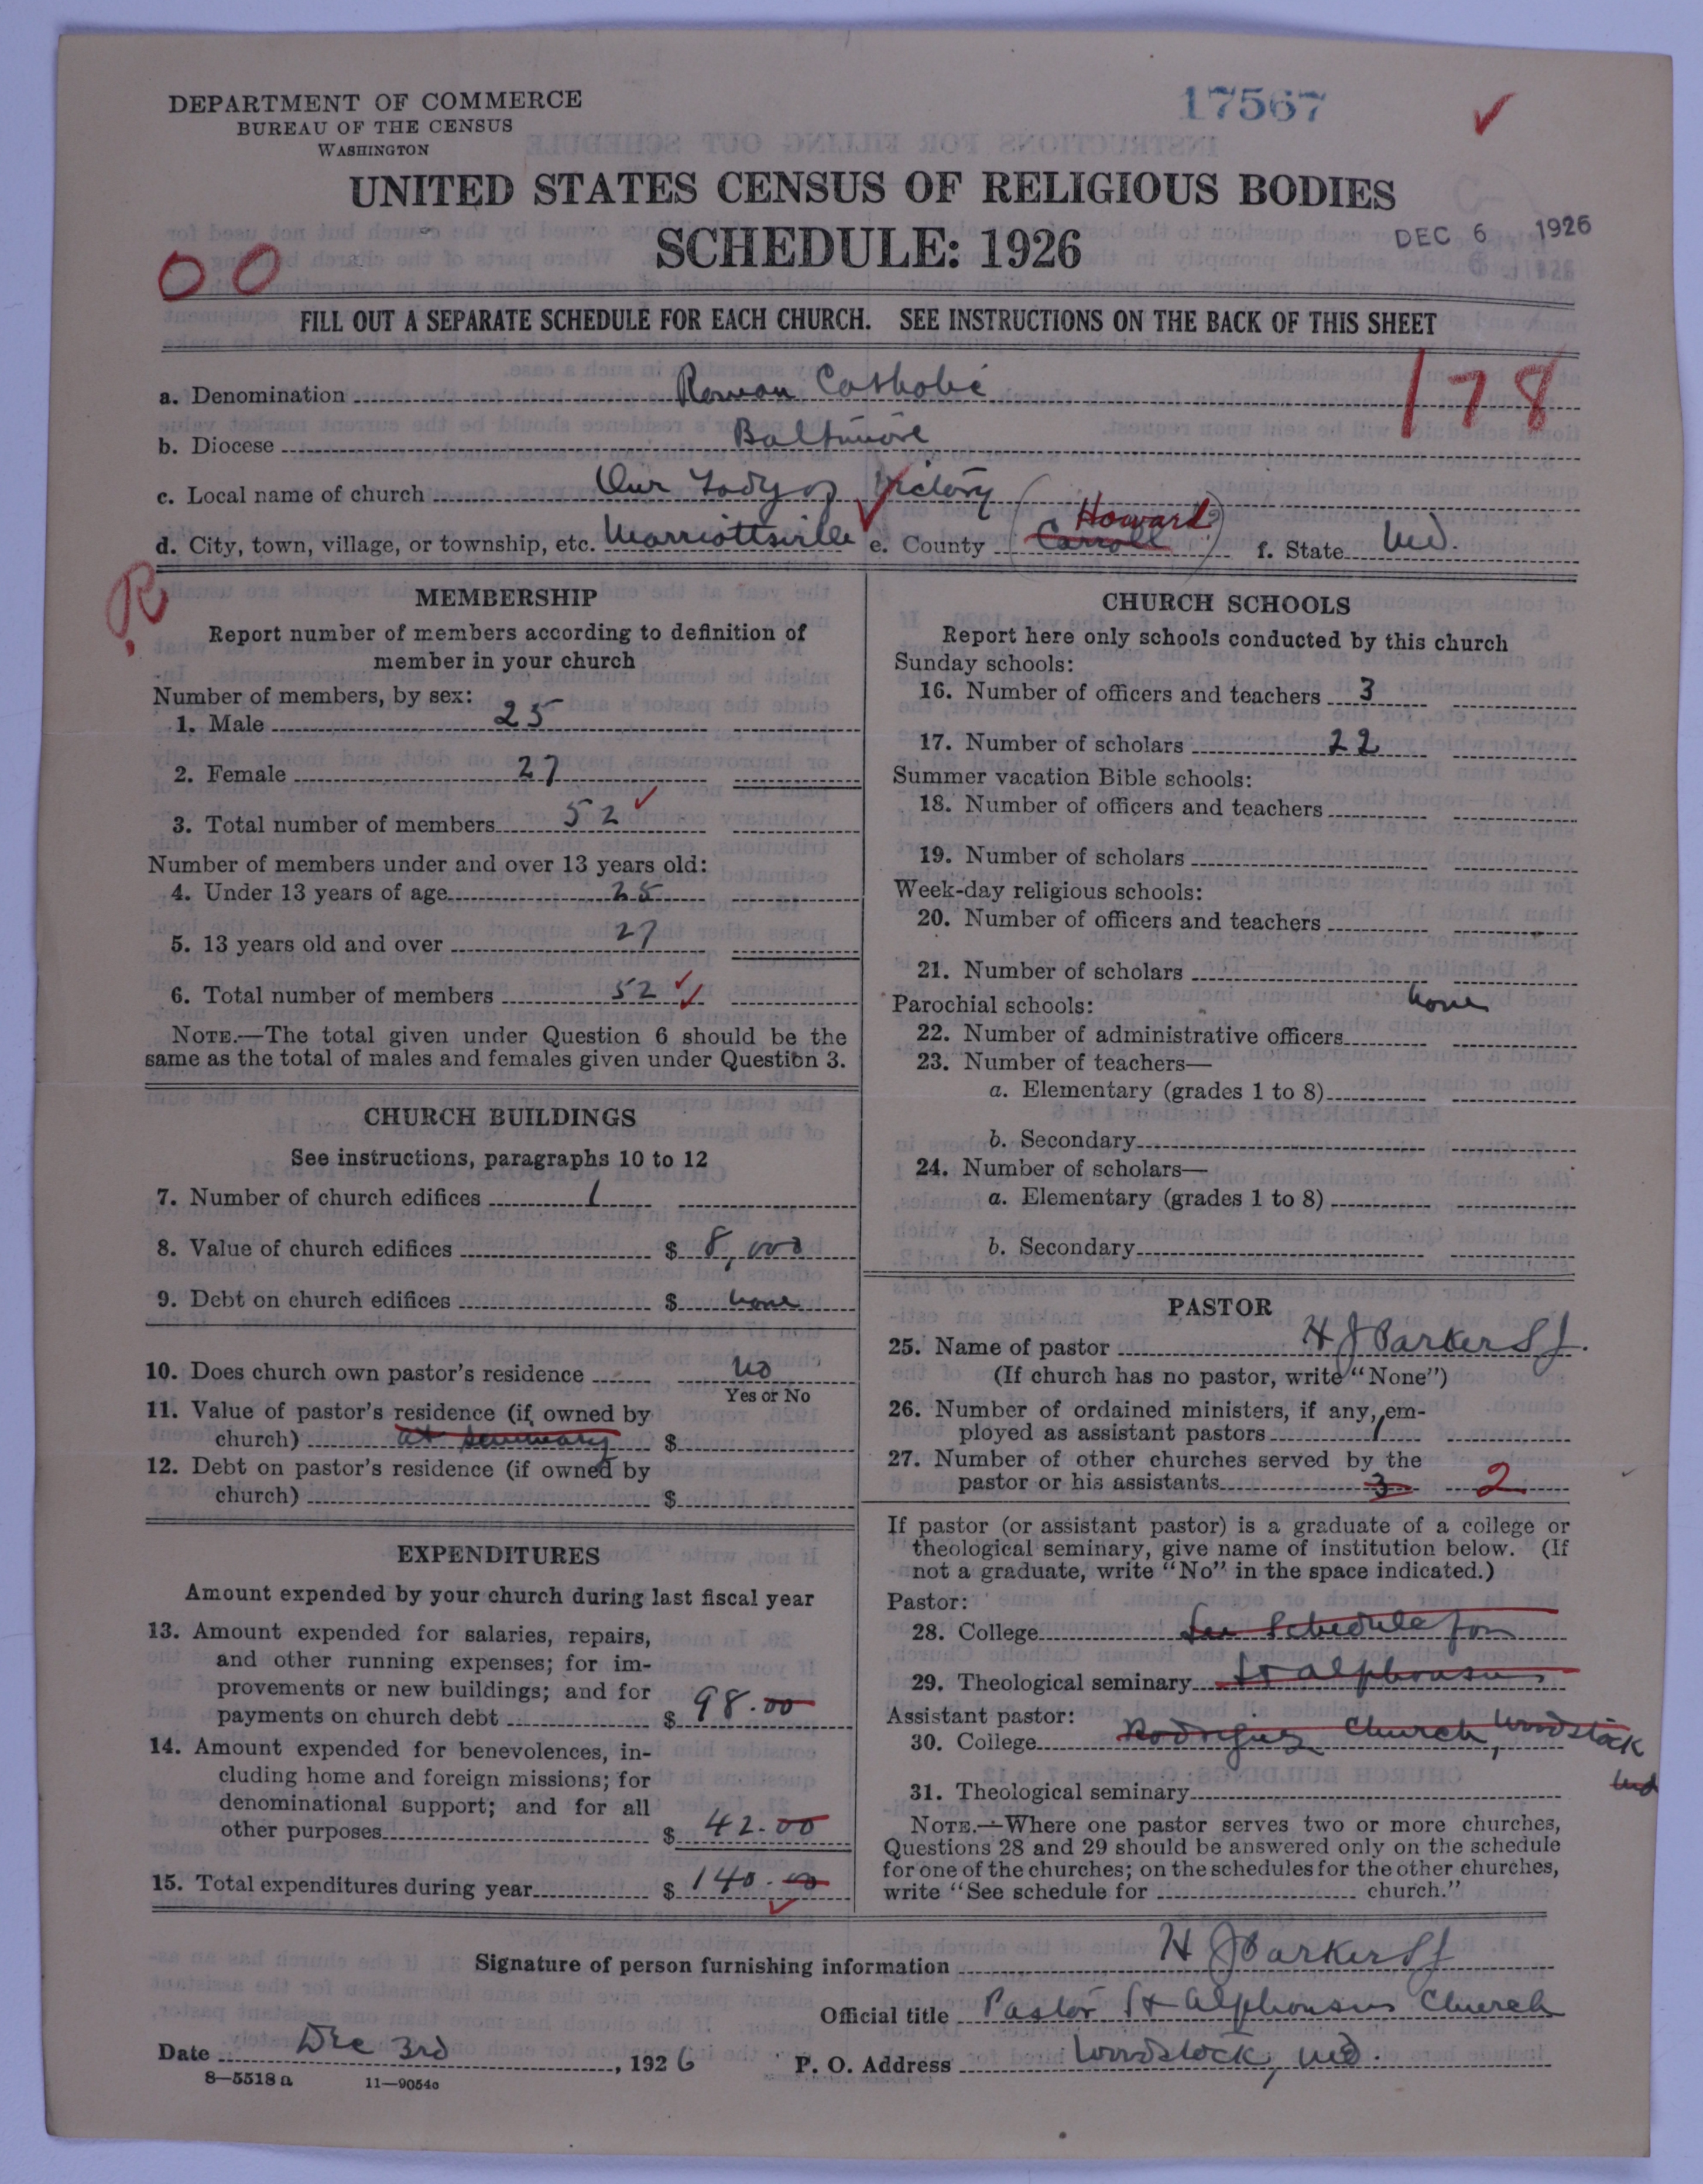 17567
DEPARTMENT OF COMMERCE
BUREAU OF THE CENSUS
WASHINGTON
UNITED STATES CENSUS OF RELIGIOUS BODIES
SCHEDULE: 1926
DEC 6 1926
00
FILL OUT A SEPARATE SCHEDULE FOR EACH CHURCH. SEE INSTRUCTIONS ON THE BACK OF THIS SHEET
178
a. Denomination Roman Catholic
b. Diocese Baltimore
c. Local name of church Our Lady of Victory
d. City, town, village, or township, etc. Marriottsville e. County Carroll Howard f. State Md.
R
MEMBERSHIP
Report number of members according to definition of
member in your church
Number of members, by sex:
1. Male 25
2. Female 27
3. Total number of members 52
Number of members under and over 13 years old:
4. Under 13 years of age 25
5. 13 years old and over 27
6. Total number of members 52
NOTE.—The total given under Question 6 should be the
same as the total of males and females given under Question 3.
CHURCH BUILDINGS
See instructions, paragraphs 10 to 12
7. Number of church edifices 1
8. Value of church edifices $ 8,000
9. Debt on church edifices $ none
10. Does church own pastor's residence no
Yes or No
11. Value of pastor's residence (if owned by
church) at seminary $
12. Debt on pastor's residence (if owned by
church) $
EXPENDITURES
Amount expended by your church during last fiscal year
13. Amount expended for salaries, repairs,
and other running expenses; for im-
provements or new buildings; and for
payments on church debt $ 98.00
14. Amount expended for benevolences, in-
cluding home and foreign missions; for
denominational support; and for all
other purposes $ 42.00
15. Total expenditures during year $ 140.00
CHURCH SCHOOLS
Report here only schools conducted by this church
Sunday schools:
16. Number of officers and teachers 3
17. Number of scholars 22
Summer vacation Bible schools:
18. Number of officers and teachers
19. Number of scholars
Week-day religious schools:
20. Number of officers and teachers
21. Number of scholars
Parochial schools: none
22. Number of administrative officers
23. Number of teachers—
a. Elementary (grades 1 to 8)
b. Secondary
24. Number of scholars—
a. Elementary (grades 1 to 8)
b. Secondary
PASTOR
25. Name of pastor H J Parker S J.
(If church has no pastor, write "None")
26. Number of ordained ministers, if any, em-
ployed as assistant pastors 1
27. Number of other churches served by the
pastor or his assistants 3 2
If pastor (or assistant pastor) is a graduate of a college or
theological seminary, give name of institution below. (If
not a graduate, write "No" in the space indicated.)
Pastor:
28. College See Schedule for
29. Theological seminary St Alphonsus
Assistant pastor:
30. College Rodriguez Church, Woodstock
Md
31. Theological seminary
NOTE.—Where one pastor serves two or more churches,
Questions 28 and 29 should be answered only on the schedule
for one of the churches; on the schedules for the other churches,
write "See schedule for church."
Signature of person furnishing information H J Parker S J
Official title Pastor St Alphonsus Church
Date Dec 3rd, 1926 P. O. Address Woodstock, Md.
8—5518 a 11—9054c